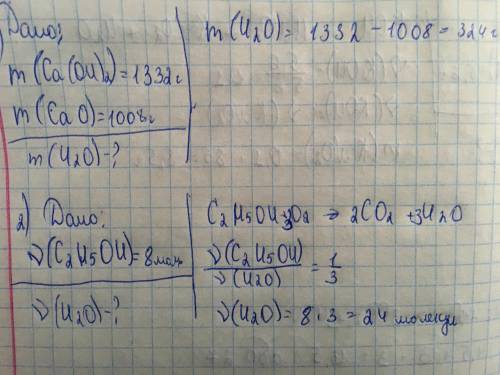 Дано:
m(Ca(OH)₂)=1332г
m(CaO)=1008г
m(H2O)-?
m(H2O)= 1332 - 1008 = 324г
2) Дано:
ν(C₂H5OH)=8мол.
ν(H2O)-?
C₂H5OH+3O₂ → 2CO₂ +3H2O
ν(C₂H5OH)
ν(H2O)
= 1/3
ν(H2O)= 8·3 = 24 молекул